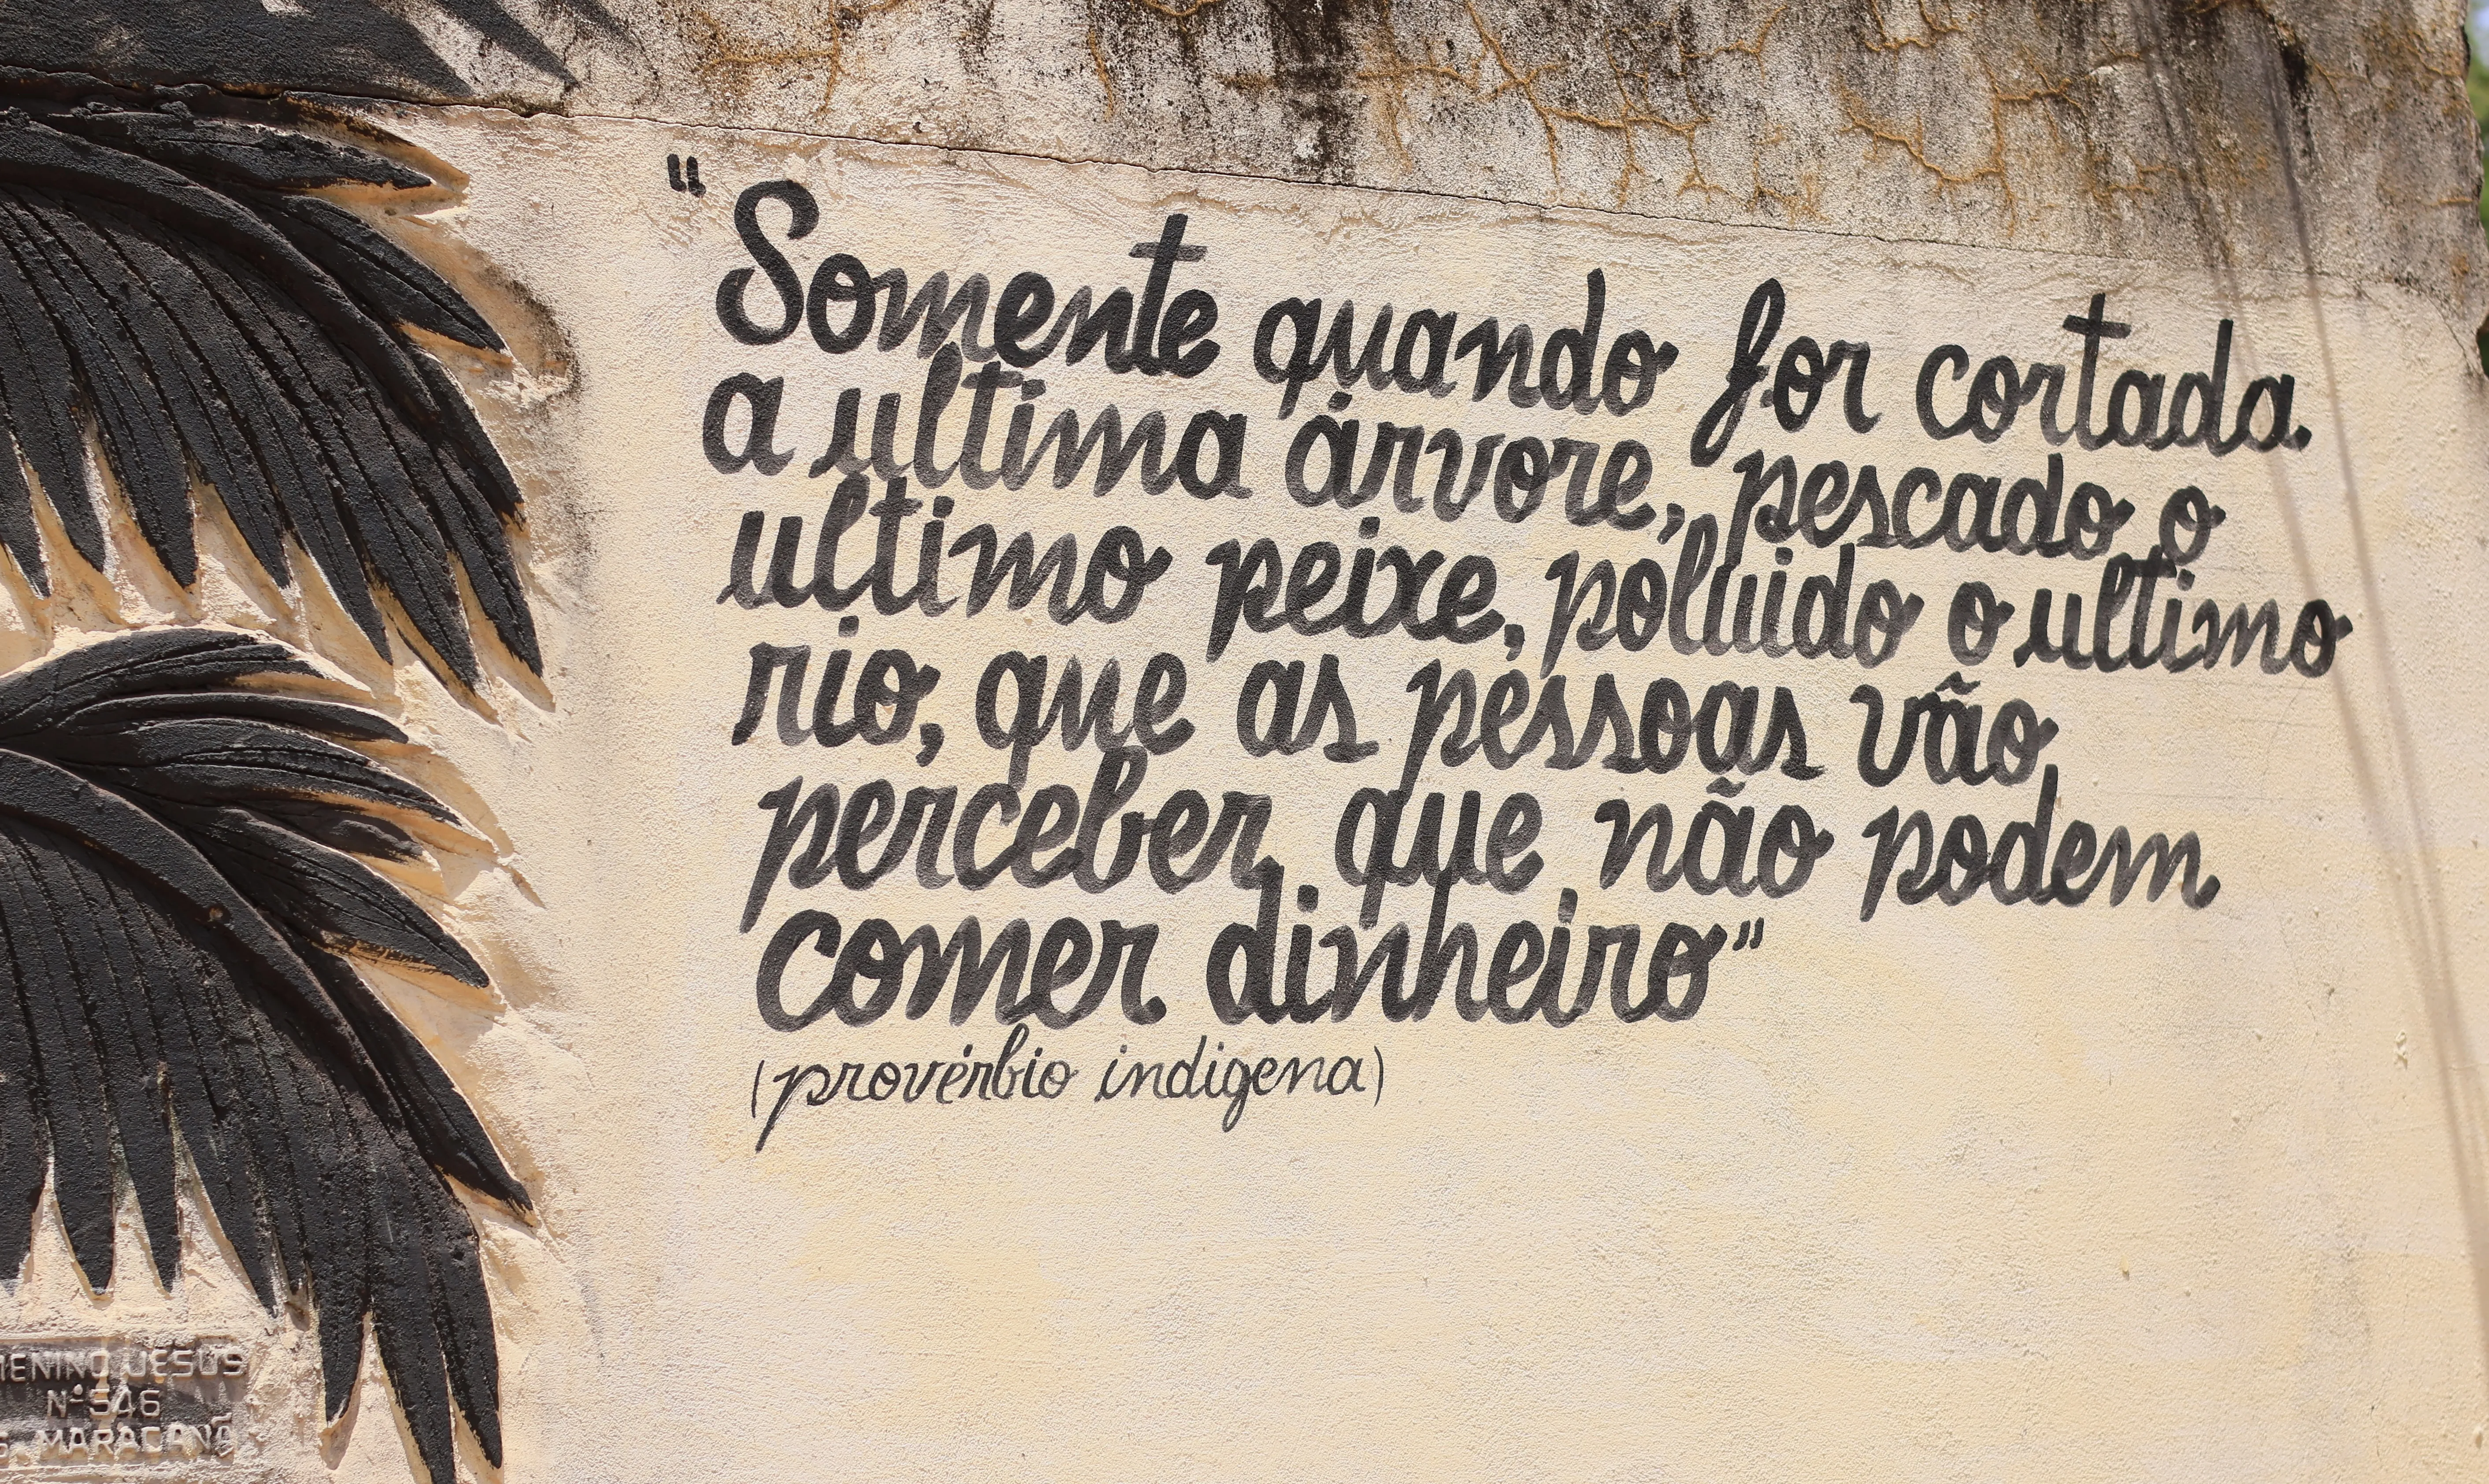 "Somente quando for cortada
a ultima árvore, pescado o
ultimo peixe, poluido o ultimo
rio, que as pessoas vão
perceber que não podem
comer dinheiro"
(provérbio indigena)
MENINO JESUS
Nº 546
MARACANÃ